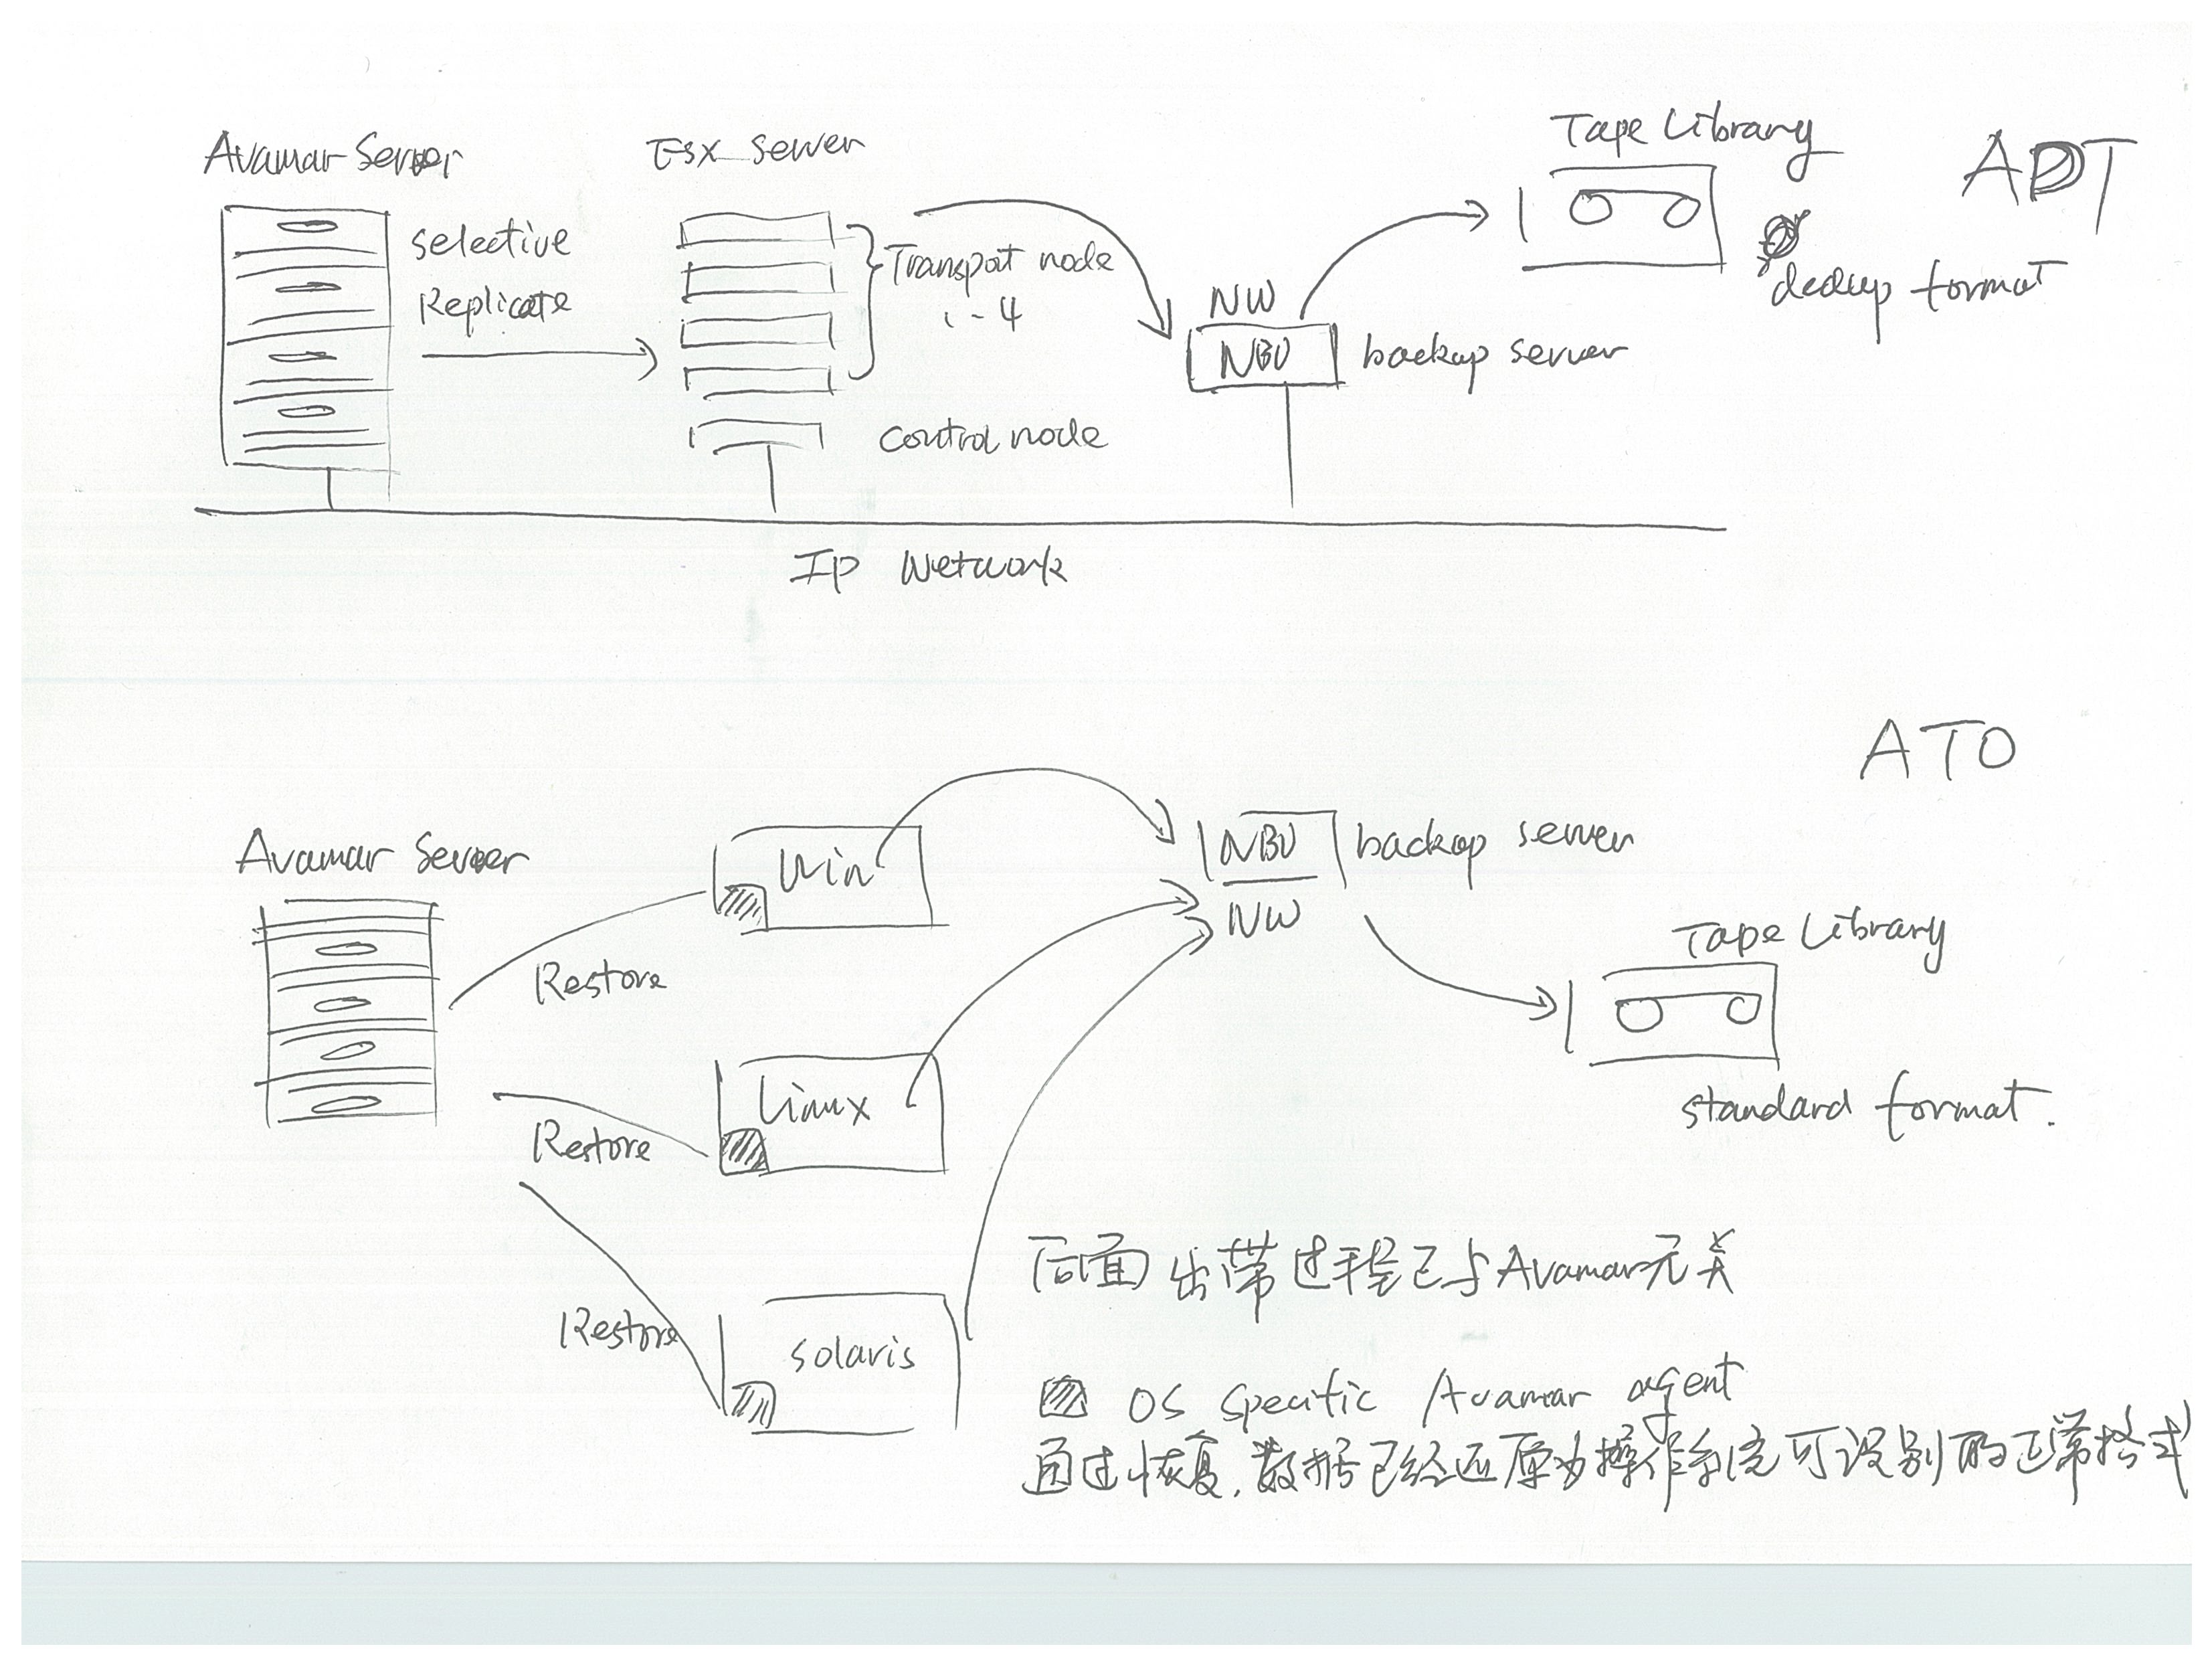 Avamar Server
Esx Server
Tape Library
ADT
selective
Replicate
Transport node
1-4
NW
NBU
backup server
dedup format
control node
IP Network
ATO
Avamar Server
Win
NBU
backup server
NW
Tape Library
Restore
Linux
standard format.
Restore
后面出带过程已与Avamar无关
Restore
solaris
OS specific Avamar agent
通过恢复,数据已经还原为操作系统可识别的正常格式